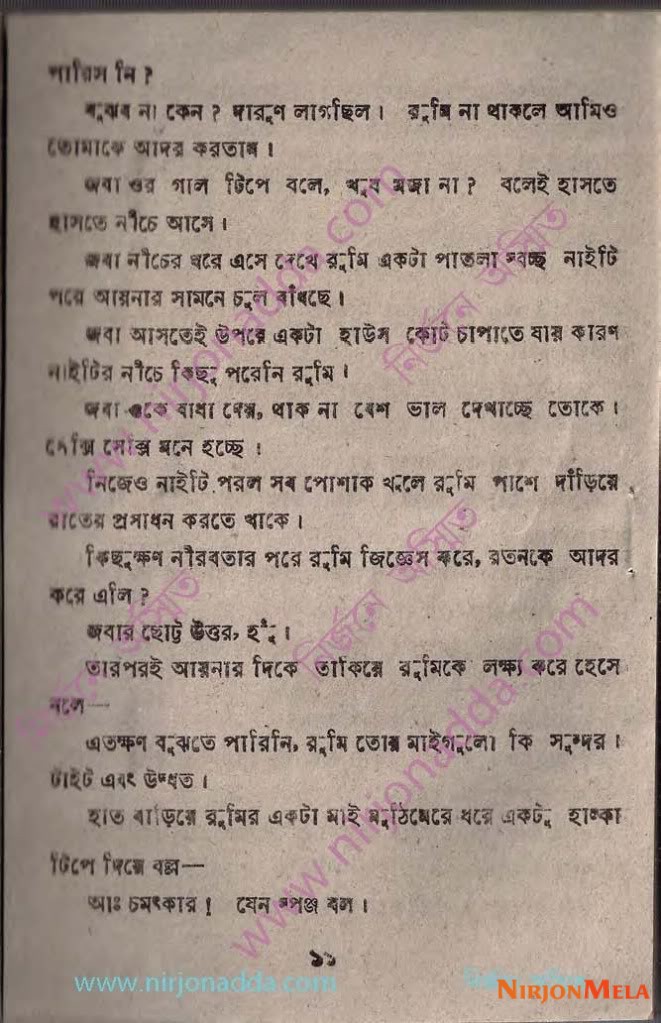 পারিস নি ?
বুঝব না কেন ? দারুণ লাগছিল। রুমি না থাকলে আমিও
তোমাকে আদর করতাম।
জবা ওর গাল টিপে বলে, খুব মজা না ? বলেই হাসতে
হাসতে নীচে আসে।
জবা নীচের ঘরে এসে দেখে রুমি একটা পাতলা স্বচ্ছ নাইটি
পরে আয়নার সামনে চুল বাঁধছে।
জবা আসতেই উপরে একটা হাউস কোট চাপাতে যায় কারণ
নাইটির নীচে কিছু পরেনি রুমি।
জবা ওকে বাধা দেয়, থাক না বেশ ভাল দেখাচ্ছে তোকে।
সেক্সি সেক্সি মনে হচ্ছে।
নিজেও নাইটি পরল সব পোশাক খুলে রুমি পাশে দাঁড়িয়ে
রাতের প্রসাধন করতে থাকে।
কিছুক্ষণ নীরবতার পরে রুমি জিজ্ঞেস করে, রতনকে আদর
করে এলি ?
জবার ছোট্ট উত্তর, হুঁ।
তারপরই আয়নার দিকে তাকিয়ে রুমিকে লক্ষ্য করে হেসে
বলে—
এতক্ষণ বুঝতে পারিনি, রুমি তোর মাইগুলো কি সুন্দর।
টাইট এবং উদ্ধত।
হাত বাড়িয়ে রুমির একটা মাই মুঠিমেরে ধরে একটু হাল্কা
টিপে দিয়ে বল্ল—
আঃ চমৎকার ! যেন স্পঞ্জ বল।
১১
www.nirjonadda.com
NIRJONMELA
www.nirjonadda.com
নির্জনে অস্মিত
নির্জনে অস্মিত
www.nirjonadda.com